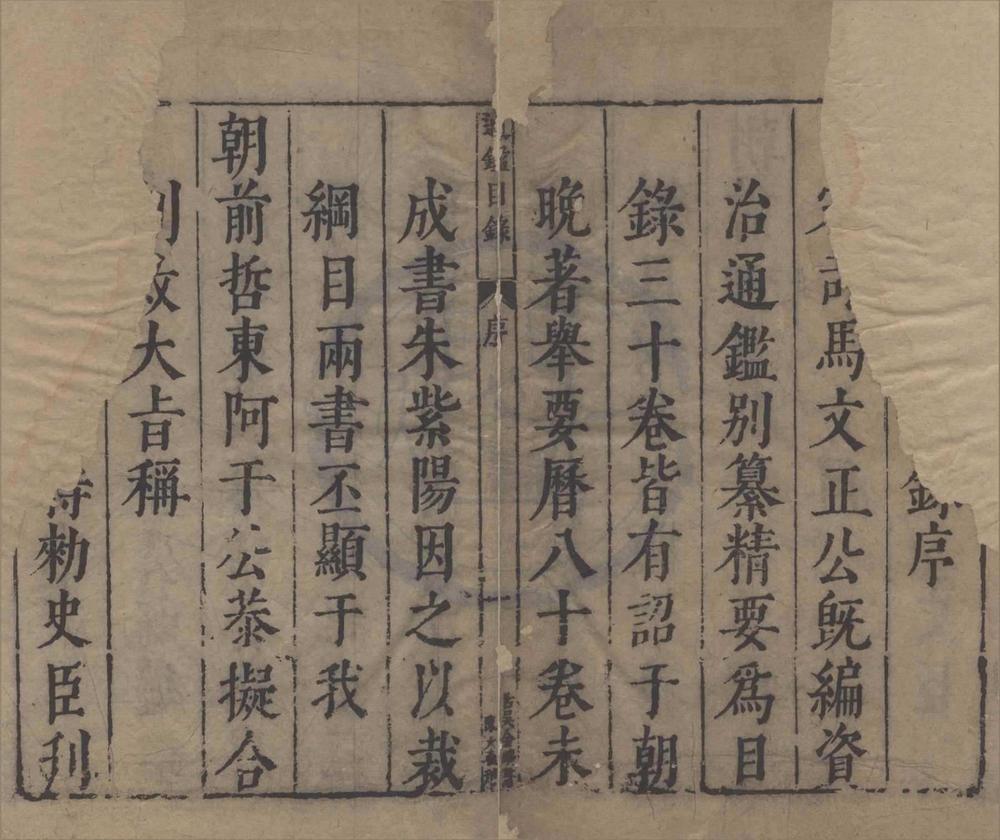 錄序
馬文正公旣編資
治通鑑別纂精要爲目
錄三十卷皆有詔于朝
晚著舉要曆八十卷未
鑑目錄 序 一
成書朱紫陽因之以裁
綱目兩書丕顯于我
朝前哲東阿于公恭擬合
大旨稱
勑史臣刋